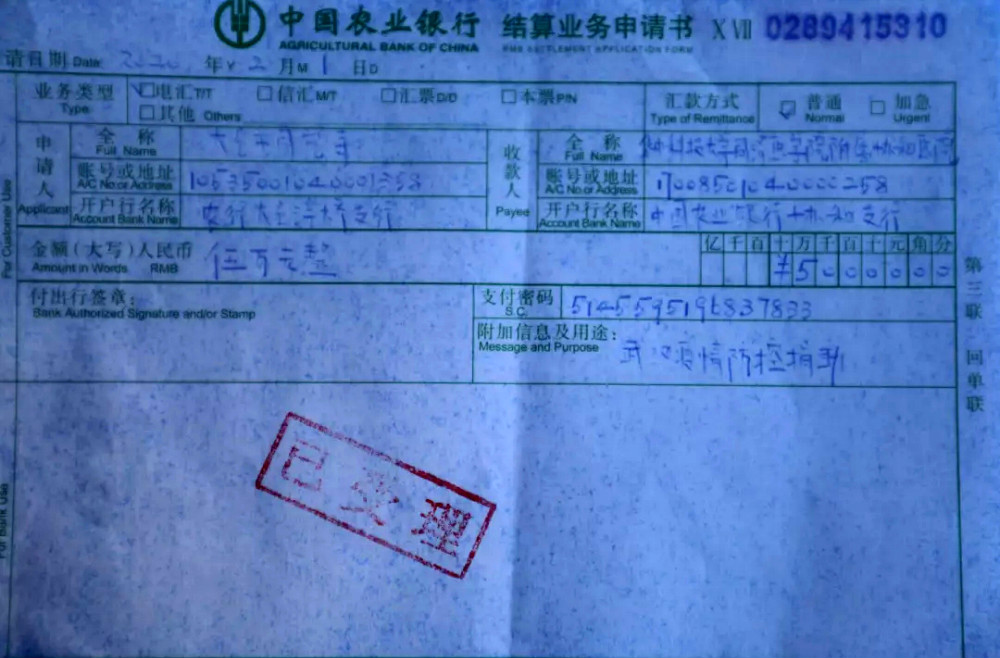 中国农业银行 结算业务申请书 X VII 0289415310
AGRICULTURAL BANK OF CHINA RMB SETTLEMENT APPLICATION FORM
请日期 Date: 2020 年Y 2 月M 1 日D
业务类型 Type 电汇T/T 信汇M/T 汇票D/D 本票P/N 其他 Others
汇款方式 Type of Remittance 普通 Normal 加急 Urgent
申请人 Applicant
全称 Full Name
账号或地址 A/C No.or Address 10535001040001358
开户行名称 Account Bank Name 农行大仝洋桥支行
收款人 Payee
全称 Full Name 科技大学同济医学院附属协和医院
账号或地址 A/C No.or Address 17008501040000258
开户行名称 Account Bank Name 中国农业银行协和支行
金额(大写)人民币 伍万元整
Amount in Words RMB
亿千百十万千百十元角分
¥5000000
付出行签章:
Bank Authorized Signature and/or Stamp
支付密码 S.C. 5145595196837833
附加信息及用途: 武汉疫情防控捐助
Message and Purpose
第三联 回单联
For Customer Use
For Bank Use
已受理